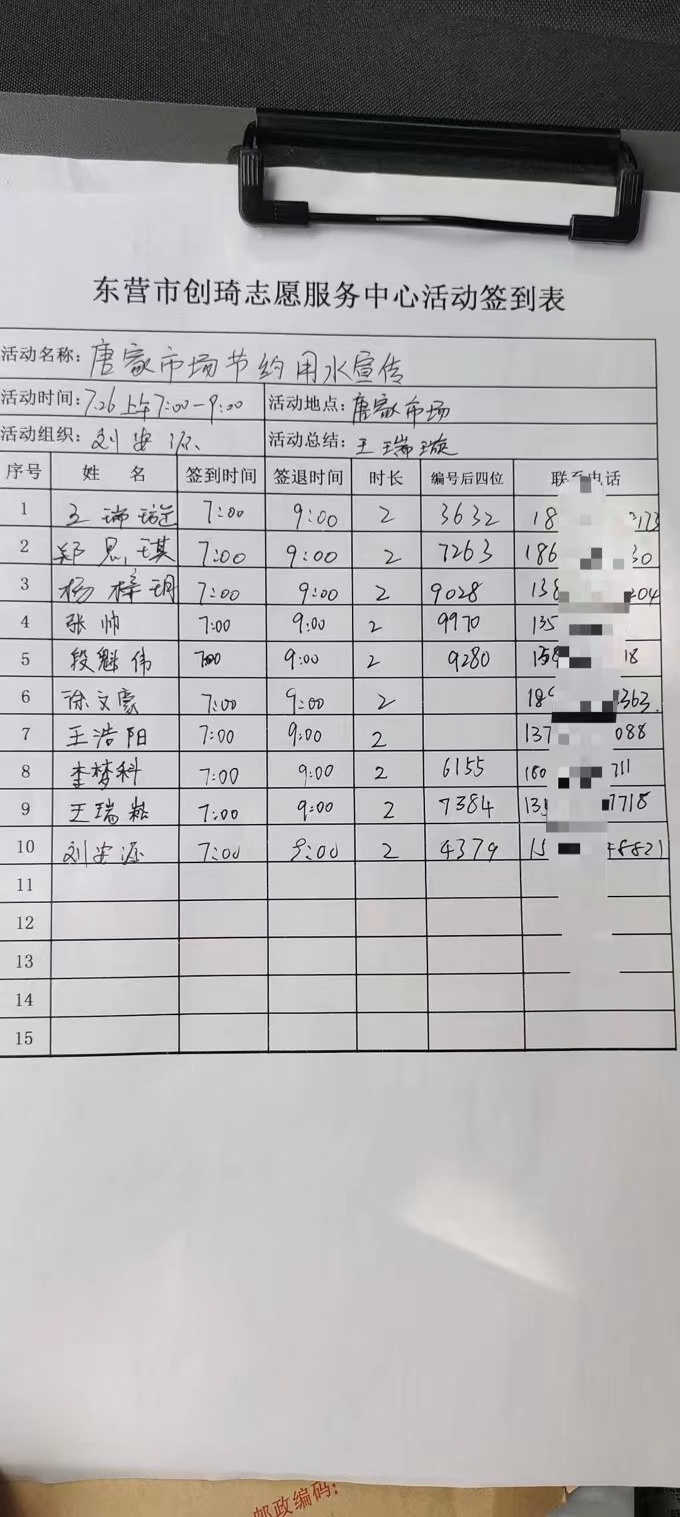 东营市创琦志愿服务中心活动签到表
活动名称：唐家市场节约用水宣传
活动时间：7.26上午7:00-9:00 活动地点：唐家市场
活动组织：刘安源 活动总结：王瑞璇
序号 姓名 签到时间 签退时间 时长 编号后四位 联系电话
1 王瑞璇 7:00 9:00 2 3632 18 173
2 郑思琪 7:00 9:00 2 7263 186 30
3 杨梓玥 7:00 9:00 2 9028 138 04
4 张帅 7:00 9:00 2 9970 135
5 段魁伟 7:00 9:00 2 9280 158 18
6 徐文豪 7:00 9:00 2 18 363
7 王浩阳 7:00 9:00 2 137 088
8 李梦科 7:00 9:00 2 6155 180 711
9 王瑞崧 7:00 9:00 2 7384 135 7718
10 刘安源 7:00 9:00 2 4379 15 8821
11
12
13
14
15
邮政编码：